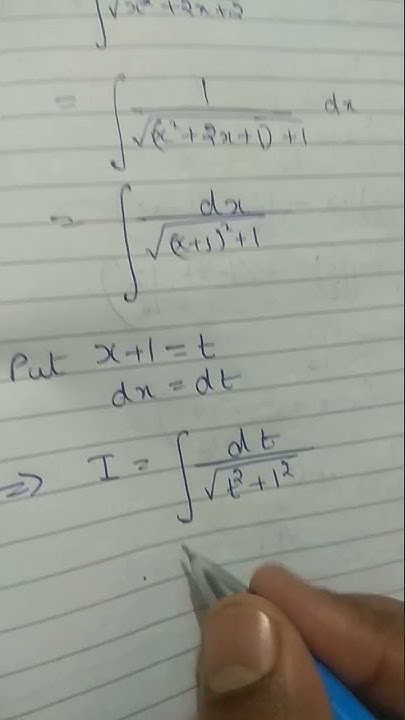 ∫ √x²+2x+2
= ∫ 1/√(x²+2x+1)+1 dx
= ∫ dx/√(x+1)²+1
Put x+1 = t
dx = dt
⇒ I = ∫ dt/√t²+1²